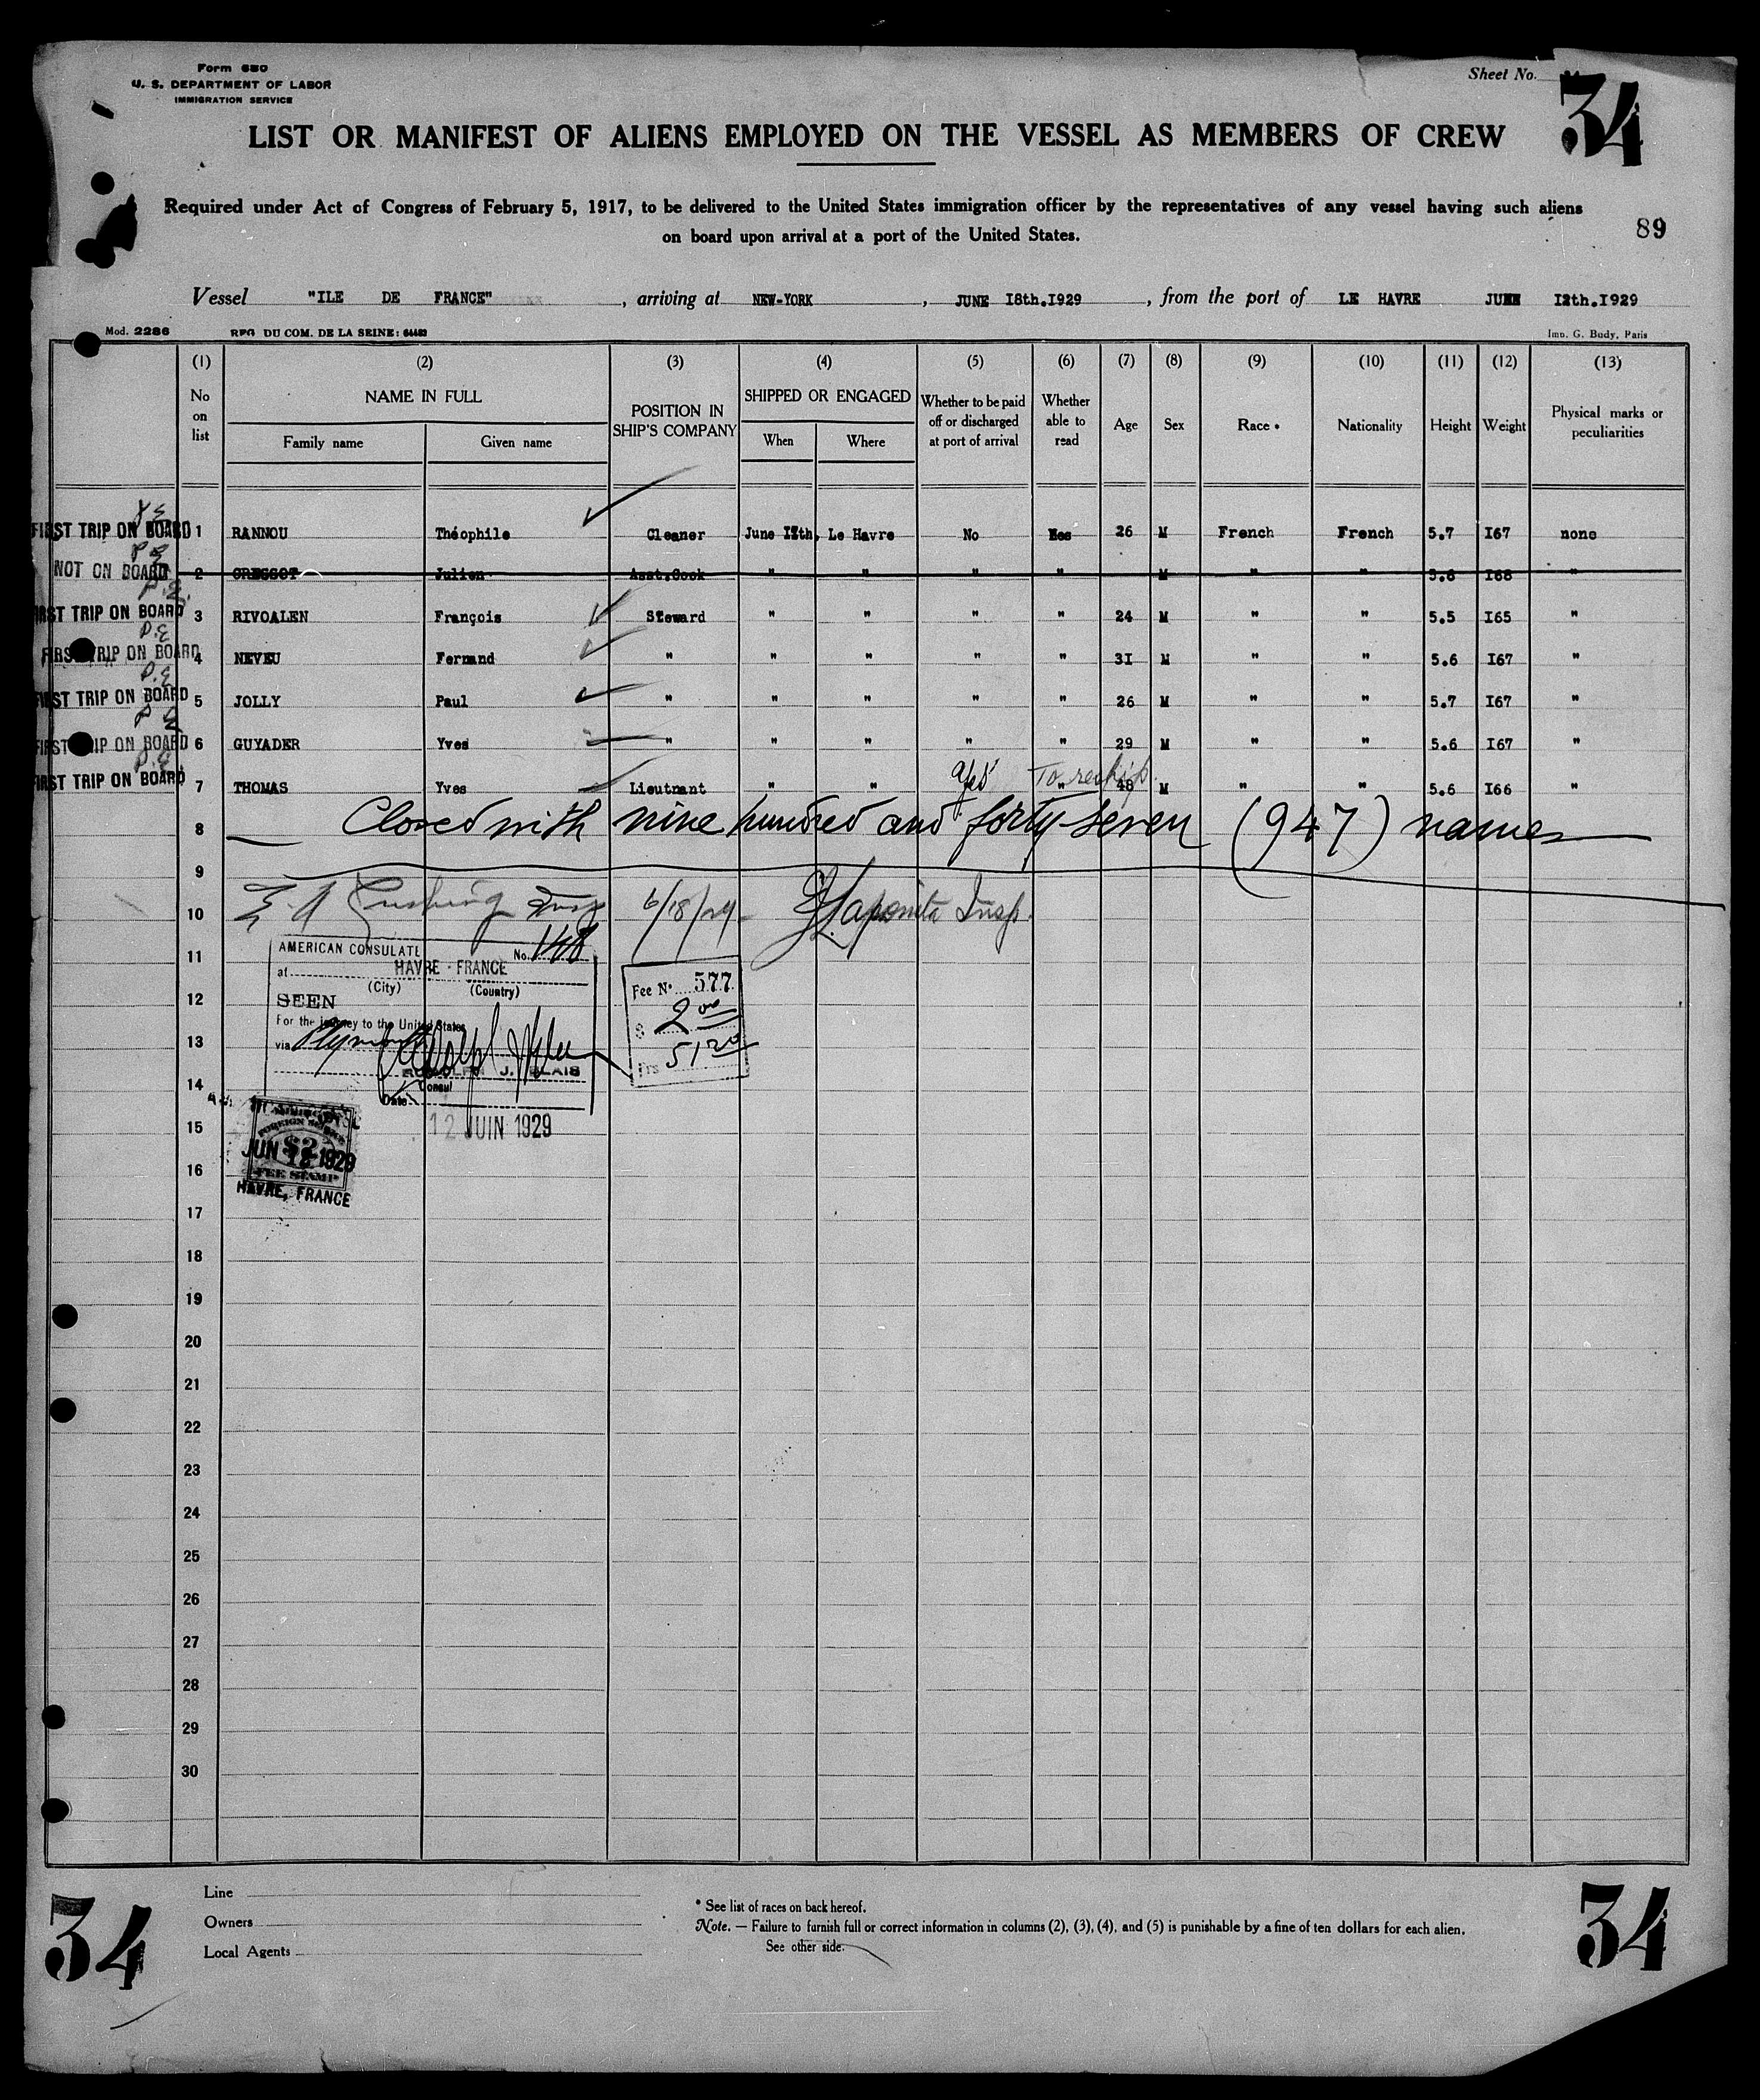 Form 680
U. S. DEPARTMENT OF LABOR
IMMIGRATION SERVICE
Sheet No.
34
LIST OR MANIFEST OF ALIENS EMPLOYED ON THE VESSEL AS MEMBERS OF CREW
Required under Act of Congress of February 5, 1917, to be delivered to the United States immigration officer by the representatives of any vessel having such aliens
on board upon arrival at a port of the United States.
89
Vessel "ILE DE FRANCE" , arriving at NEW-YORK , JUNE I8th.I929 , from the port of LE HAVRE JUNE I2th.I929
Mod. 2286 RPG DU COM. DE LA SEINE: Imp. G. Budy, Paris
(1) (2) (3) (4) (5) (6) (7) (8) (9) (10) (11) (12) (13)
No on list NAME IN FULL Family name Given name POSITION IN SHIP'S COMPANY SHIPPED OR ENGAGED When Where Whether to be paid off or discharged at port of arrival Whether able to read Age Sex Race * Nationality Height Weight Physical marks or peculiarities
FIRST TRIP ON BOARD 1 RANNOU Théophile Cleaner June I2th, Le Havre No Yes 26 M French French 5.7 I67 none
NOT ON BOARD 2 GRESSOT Julien Asst.Cook " " " " M " " 5.6 I68 "
FIRST TRIP ON BOARD 3 RIVOALEN François Steward " " " " 24 M " " 5.5 I65 "
FIRST TRIP ON BOARD 4 NEVEU Fernand " " " " " 3I M " " 5.6 I67 "
FIRST TRIP ON BOARD 5 JOLLY Paul " " " " " 26 M " " 5.7 I67 "
FIRST TRIP ON BOARD 6 GUYADER Yves " " " " " 29 M " " 5.6 I67 "
FIRST TRIP ON BOARD 7 THOMAS Yves Lieutnant " " yes " To reship 48 M " " 5.6 I66 "
8 Closed with nine hundred and forty-seven (947) names
9
10 Cushing Insp 6/18/29 Insp.
11
12
13
14
15
16
17
18
19
20
21
22
23
24
25
26
27
28
29
30
AMERICAN CONSULATE No. 148
at HAVRE - FRANCE
(City) (Country)
SEEN
For the journey to the United States
via Plymouth
RUDOLPH J. BLAIS
Consul
Date
12 JUIN 1929
Fee No 577
$ 2 00
Frs 51 20
FOREIGN SERVICE
$2
JUN 12 1929
FEE STAMP
HAVRE, FRANCE
Line
Owners
Local Agents
* See list of races on back hereof.
Note. — Failure to furnish full or correct information in columns (2), (3), (4), and (5) is punishable by a fine of ten dollars for each alien.
See other side.
34
34